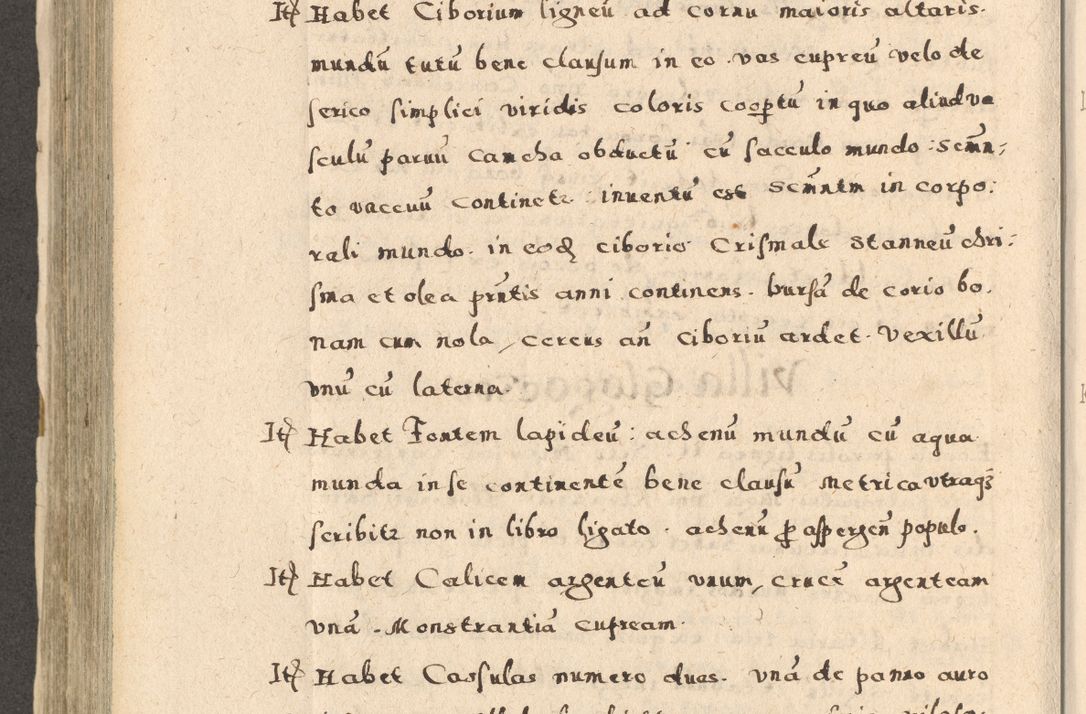 Itē Habet Ciborium ligneū ad cornu maioris altaris.
mundū tutū bene clausum in eo. vas cupreū velo de
serico simplici viridis coloris coop̱tū in quo aliud va
sculū paruū cancha obductū cū sacculo mundo. Scm̄n:
to vaccuū continetr. inuentū est Scm̄ntm in corpo:
rali mundo. in eod̄ ciborio Crismale stanneū chri:
sma et olea prn̄tis anni continens. bursā de corio bo.
nam cum nola, cereus an̄ ciboriū ardet. Vexillū
vnū cū laterna.
Itē Habet Fontem lapideū: achenū mundū cū aqua
munda in se continentē bene clausū Metrica vtraqȝ
scribitr non in libro ligato. achenū p̱ aspergen̄ populo.
Itē Habet Calicem argenteū vnum, crucē argenteam
vnā. Monstrantiā cupream.
Itē Habet Cassulas numero duas. vnā de panno auro